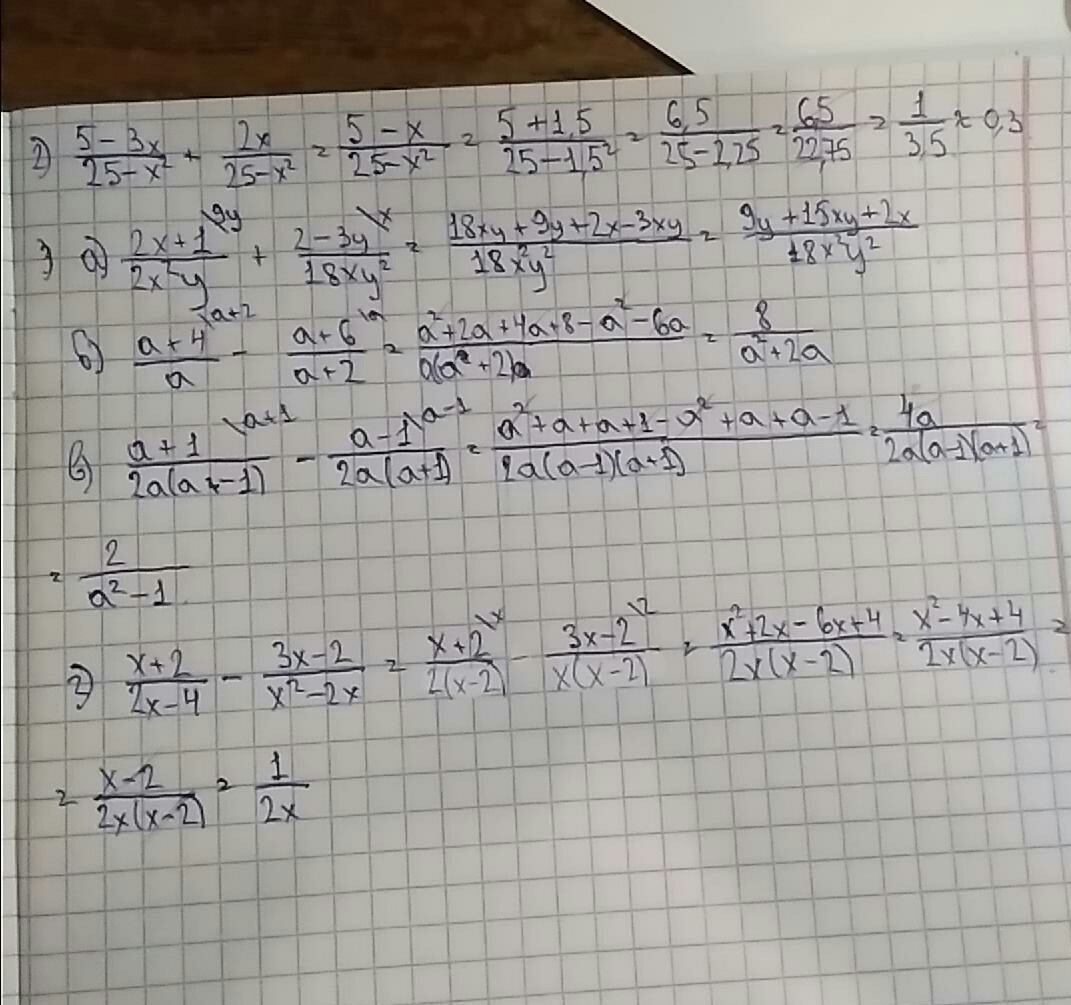 2) (5-3x)/(25-x²) + 2x/(25-x²) = (5-x)/(25-x²) = (5+1,5)/(25-1,5²) = 6,5/(25-2,25) = 6,5/22,75 = 1/3,5 ≈ 0,3
3 а) (2x+1)/(2x²y) \9y + (2-3y)/(18xy²) \x = (18xy+9y+2x-3xy)/(18x²y²) = (9y+15xy+2x)/(18x²y²)
б) (a+4)/a \a+2 - (a+6)/(a+2) \a = (a²+2a+4a+8-a²-6a)/(a(a+2)) = 8/(a²+2a)
в) (a+1)/(2a(a-1)) \a+1 - (a-1)/(2a(a+1)) \a-1 = (a²+a+a+1-a²+a+a-1)/(2a(a-1)(a+1)) = 4a/(2a(a-1)(a+1)) =
= 2/(a²-1)
г) (x+2)/(2x-4) - (3x-2)/(x²-2x) = (x+2)/(2(x-2)) \x - (3x-2)/(x(x-2)) \2 = (x²+2x-6x+4)/(2x(x-2)) = (x²-4x+4)/(2x(x-2)) =
= (x-2)/(2x(x-2)) = 1/(2x)